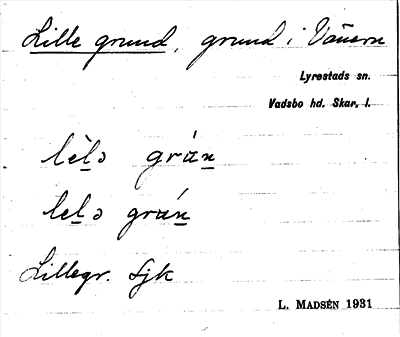 Lille grund, grund i Vänern
Lyrestads sn.
Vadsbo hd. Skar. l.
lèḻə grán̲
leḻə grán̲
Lillegr. Sjk
L. MADSÉN 1931